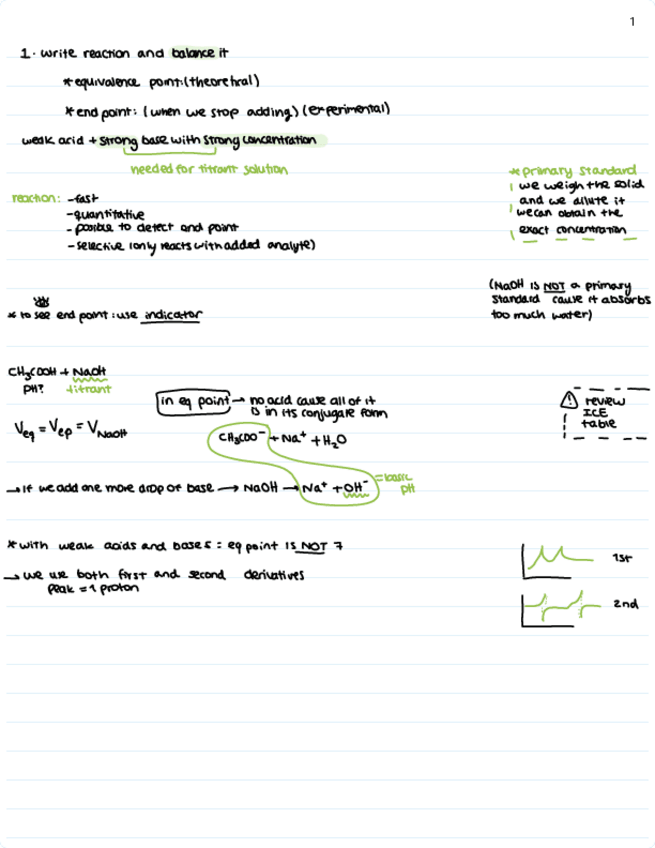 1
1. write reaction and balance it
* equivalence point: (theorehral)
* end point: (when we stop adding) (experimental)
weak acid + strong base with strong concentration
needed for titrant solution
* primary standard
we weigh the solid
and we dilute it
we can obtain the
exact concentration
reaction: - fast
- quantitative
- posible to detect end point
- selective (only reacts with added analyte)
(NaOH is NOT a primary
standard cause it absorbs
too much water)
* to see end point: use indicator
CH₃COOH + NaOH
pH? titrant
in eq point → no acid cause all of it
is in its conjugare form
⚠ review
ICE
table
Veq = Vep = VNaOH
CH₃COO⁻ + Na⁺ + H₂O
→ If we add one more drop of base → NaOH → Na⁺ + OH⁻ = basic
pH
* with weak acids and bases: eq point IS NOT 7
→ we use both first and second derivatives
peak = 1 proton
1st
2nd